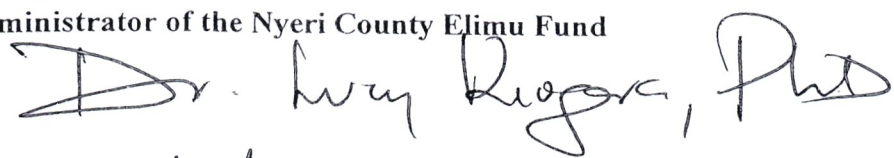 ministrator of the Nyeri County Elimu Fund
Dr. Lucy Kiogora, PhD